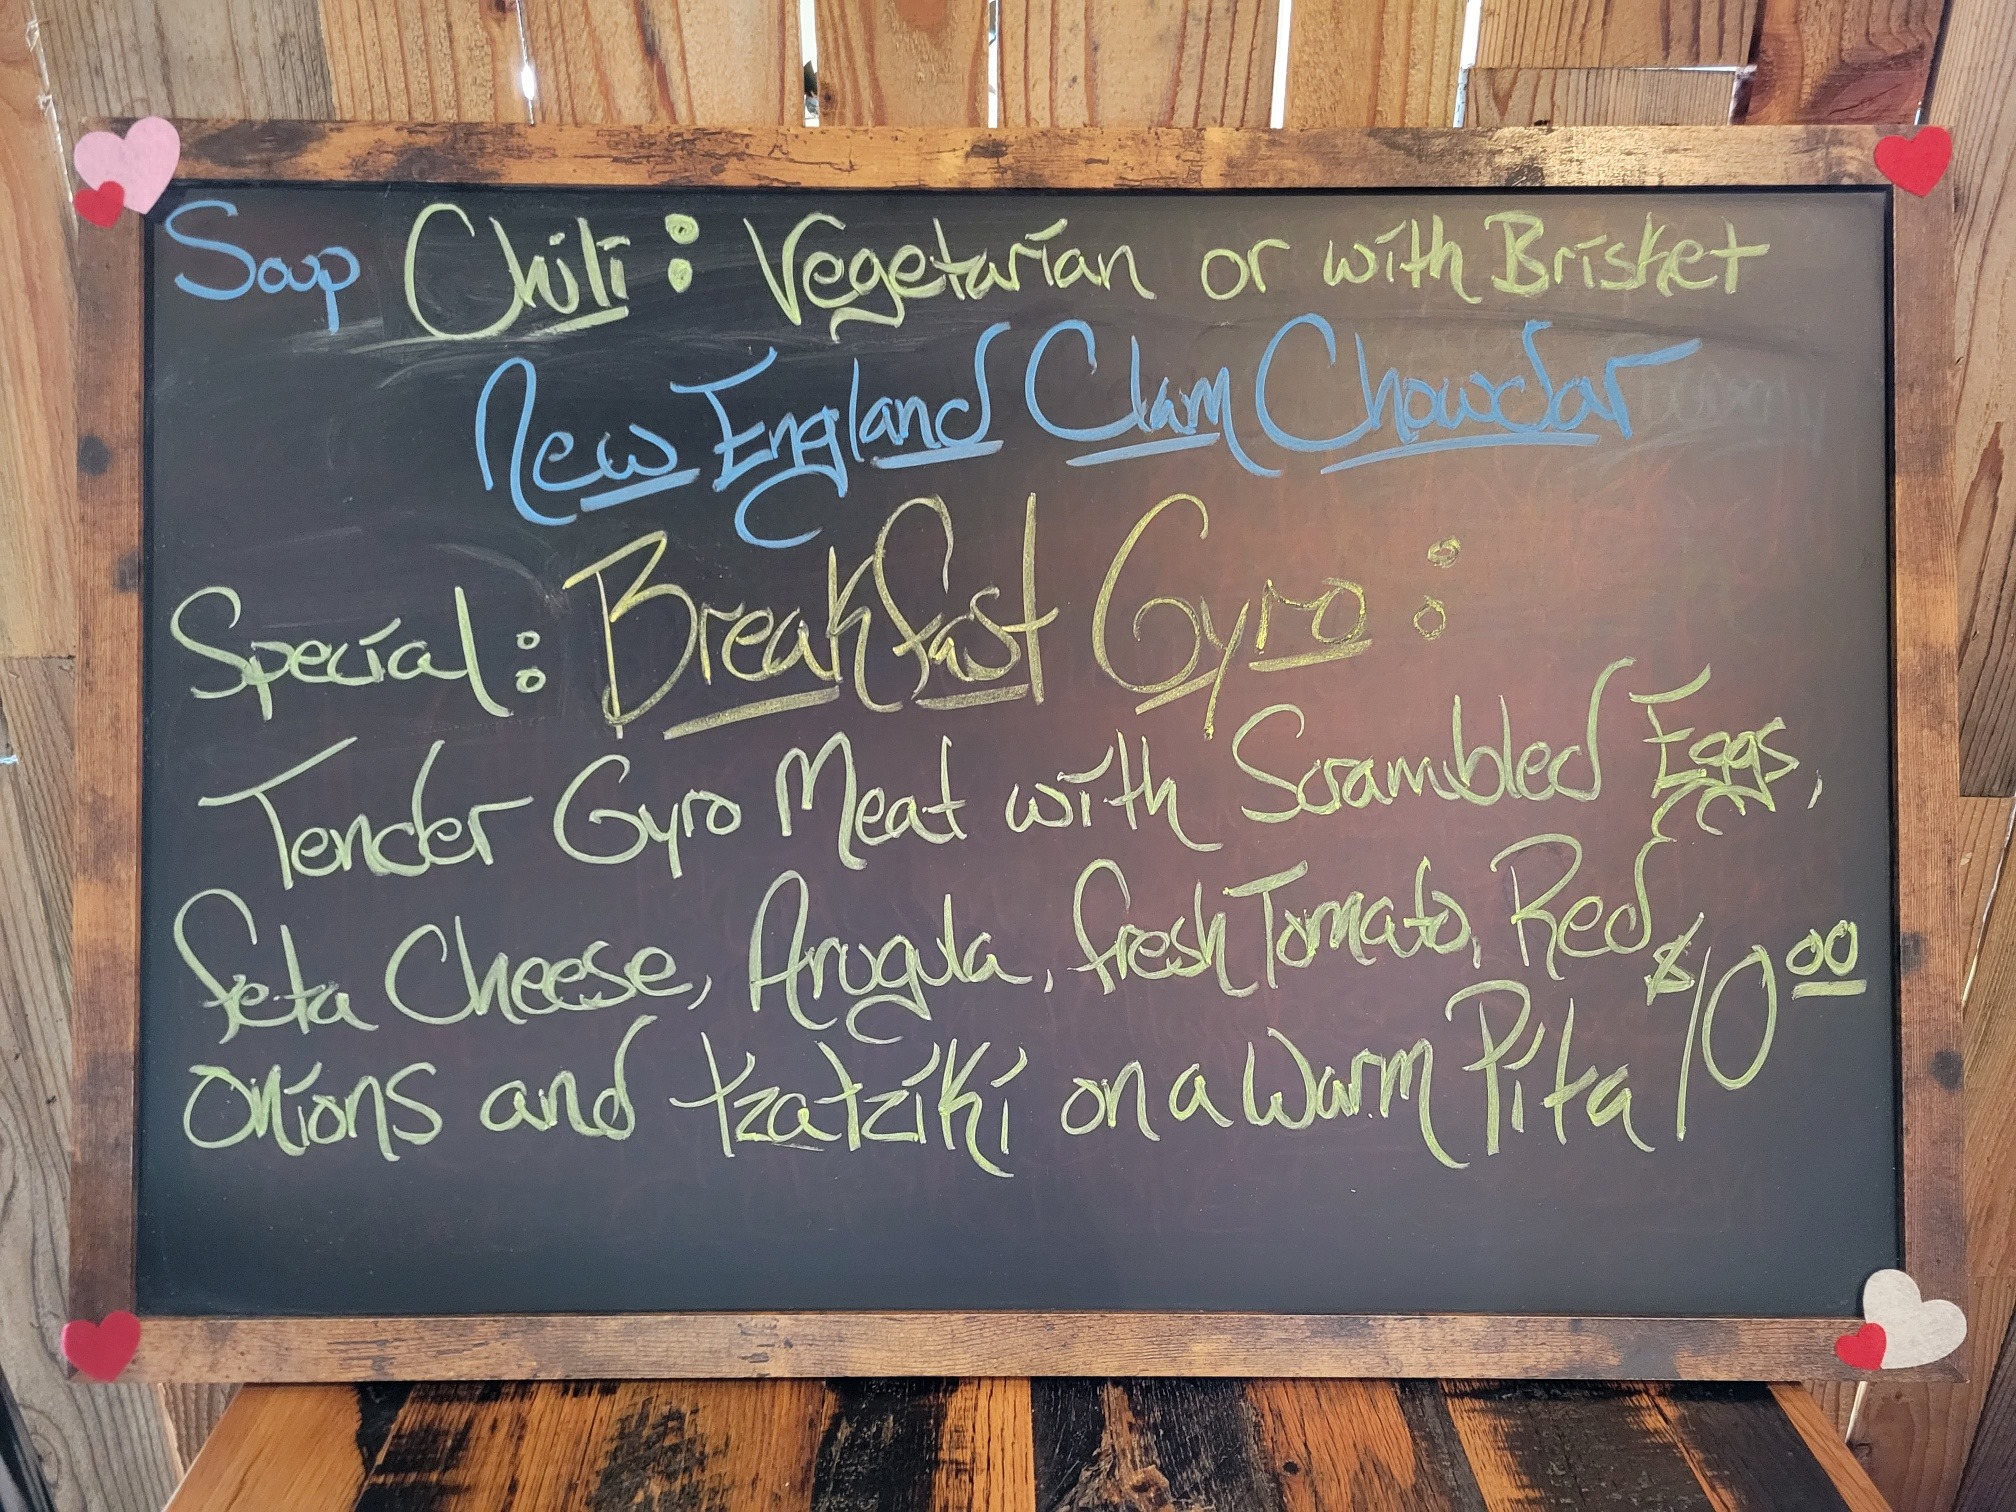 Soup Chili: Vegetarian or with Brisket
New England Clam Chowdar
Special: Breakfast Gyro:
Tender Gyro Meat with Scrambled Eggs,
feta Cheese, Arugula, fresh Tomato, Red
onions and tzatziki on a Warm Pita $10.00